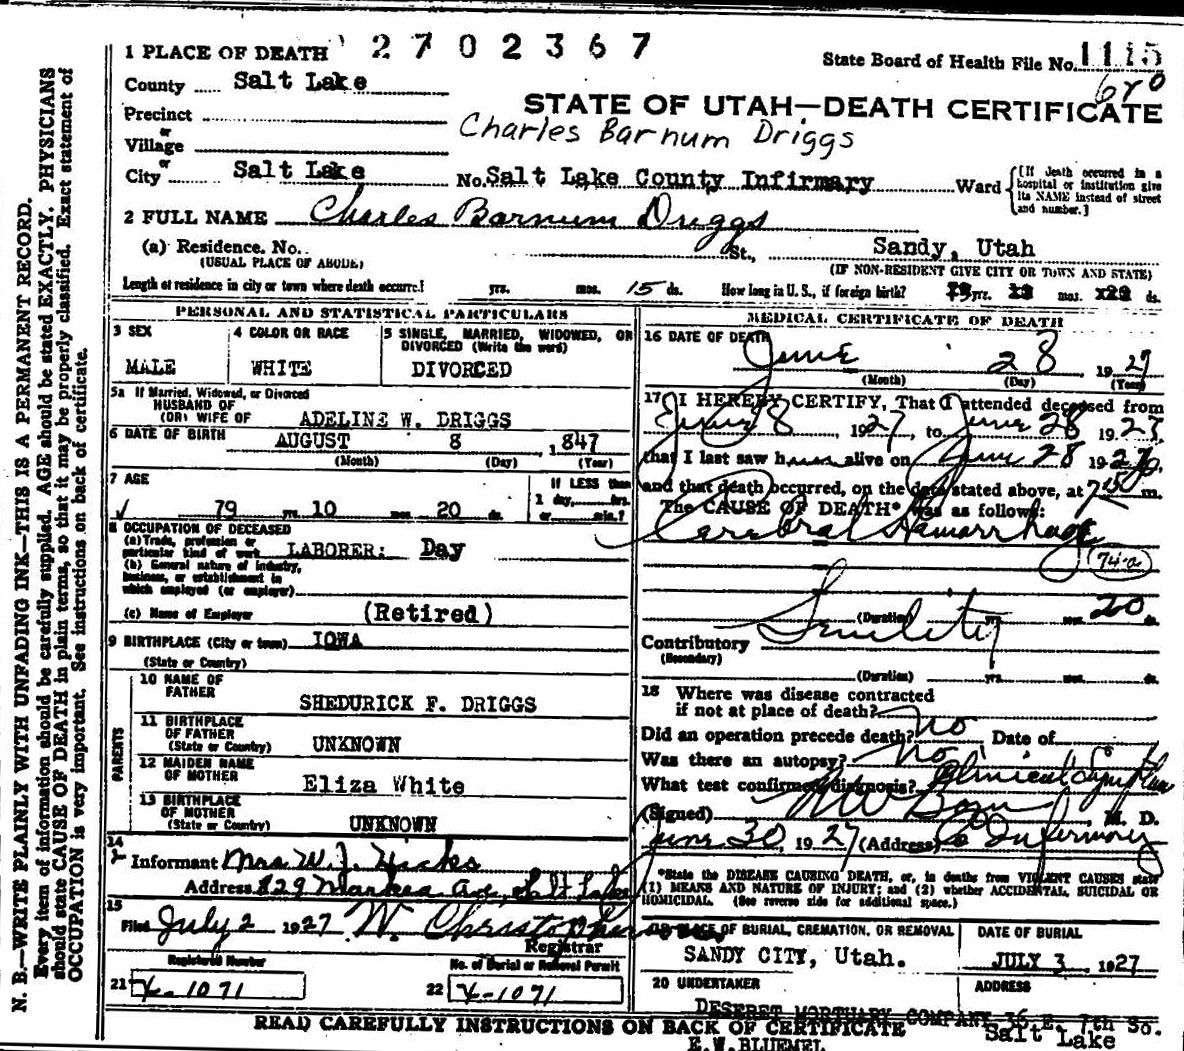 1 PLACE OF DEATH 2702367
State Board of Health File No. 1115
County Salt Lake
680
STATE OF UTAH—DEATH CERTIFICATE
Precinct
Charles Barnum Driggs
or
Village
or
City Salt Lake No. Salt Lake County Infirmary Ward
[If death occurred in a hospital or institution give its NAME instead of street and number.]
2 FULL NAME Charles Barnum Driggs
(a) Residence. No. St., Sandy, Utah
(USUAL PLACE OF ABODE) (IF NON-RESIDENT GIVE CITY OR TOWN AND STATE)
Length of residence in city or town where death occurred yrs. mos. 15 ds. How long in U.S., if foreign birth? yrs. mos. ds.
N. B.—WRITE PLAINLY WITH UNFADING INK—THIS IS A PERMANENT RECORD.
Every item of information should be carefully supplied. AGE should be stated EXACTLY. PHYSICIANS
should state CAUSE OF DEATH in plain terms, so that it may be properly classified. Exact statement of
OCCUPATION is very important. See instructions on back of certificate.
PERSONAL AND STATISTICAL PARTICULARS
3 SEX
MALE
4 COLOR OR RACE
WHITE
5 SINGLE, MARRIED, WIDOWED, OR
DIVORCED (Write the word)
DIVORCED
5a If Married, Widowed, or Divorced
HUSBAND OF
(OR) WIFE OF ADELINE W. DRIGGS
6 DATE OF BIRTH AUGUST 8 1847
(Month) (Day) (Year)
7 AGE
79 yrs. 10 mos. 20 ds.
If LESS than
1 day, hrs.
or min.?
8 OCCUPATION OF DECEASED
(a) Trade, profession or
particular kind of work LABORER: Day
(b) General nature of industry,
business, or establishment in
which employed (or employer)
(c) Name of Employer (Retired)
9 BIRTHPLACE (City or town) IOWA
(State or Country)
PARENTS
10 NAME OF
FATHER SHEDURICK F. DRIGGS
11 BIRTHPLACE
OF FATHER
(State or Country) UNKNOWN
12 MAIDEN NAME
OF MOTHER Eliza White
13 BIRTHPLACE
OF MOTHER
(State or Country) UNKNOWN
14
Informant Mrs W. J. Hicks
Address 829 Markea Ave, Salt Lake
15
Filed July 2 1927 W. Christopherson
Registrar
Registered Number No. of Burial or Removal Permit
21 X-1071 22 X-1071
MEDICAL CERTIFICATE OF DEATH
16 DATE OF DEATH June 28 1927
(Month) (Day) (Year)
17 I HEREBY CERTIFY, That I attended deceased from
June 8 1927, to June 28 1927,
that I last saw him alive on June 28 1927,
and that death occurred, on the date stated above, at 750 m.
The CAUSE OF DEATH* was as follows:
Cerebral Hemorrhage
74-a
(Duration) yrs. mos. 20 ds.
Contributory Senility
(Secondary)
(Duration) yrs. mos. ds.
18 Where was disease contracted
if not at place of death?
Did an operation precede death? no Date of
Was there an autopsy? No
What test confirmed diagnosis? Clinical Symptoms
(Signed) M. D.
June 30, 1927 (Address) Co Infirmary
*State the DISEASE CAUSING DEATH, or, in deaths from VIOLENT CAUSES state
(1) MEANS AND NATURE OF INJURY; and (2) whether ACCIDENTAL, SUICIDAL OR
HOMICIDAL. (See reverse side for additional space.)
PLACE OF BURIAL, CREMATION, OR REMOVAL
SANDY CITY, Utah.
DATE OF BURIAL
JULY 3, 1927
20 UNDERTAKER ADDRESS
DESERET MORTUARY COMPANY 36 E. 7th So.
Salt Lake
READ CAREFULLY INSTRUCTIONS ON BACK OF CERTIFICATE
E.W.BLUEMEL